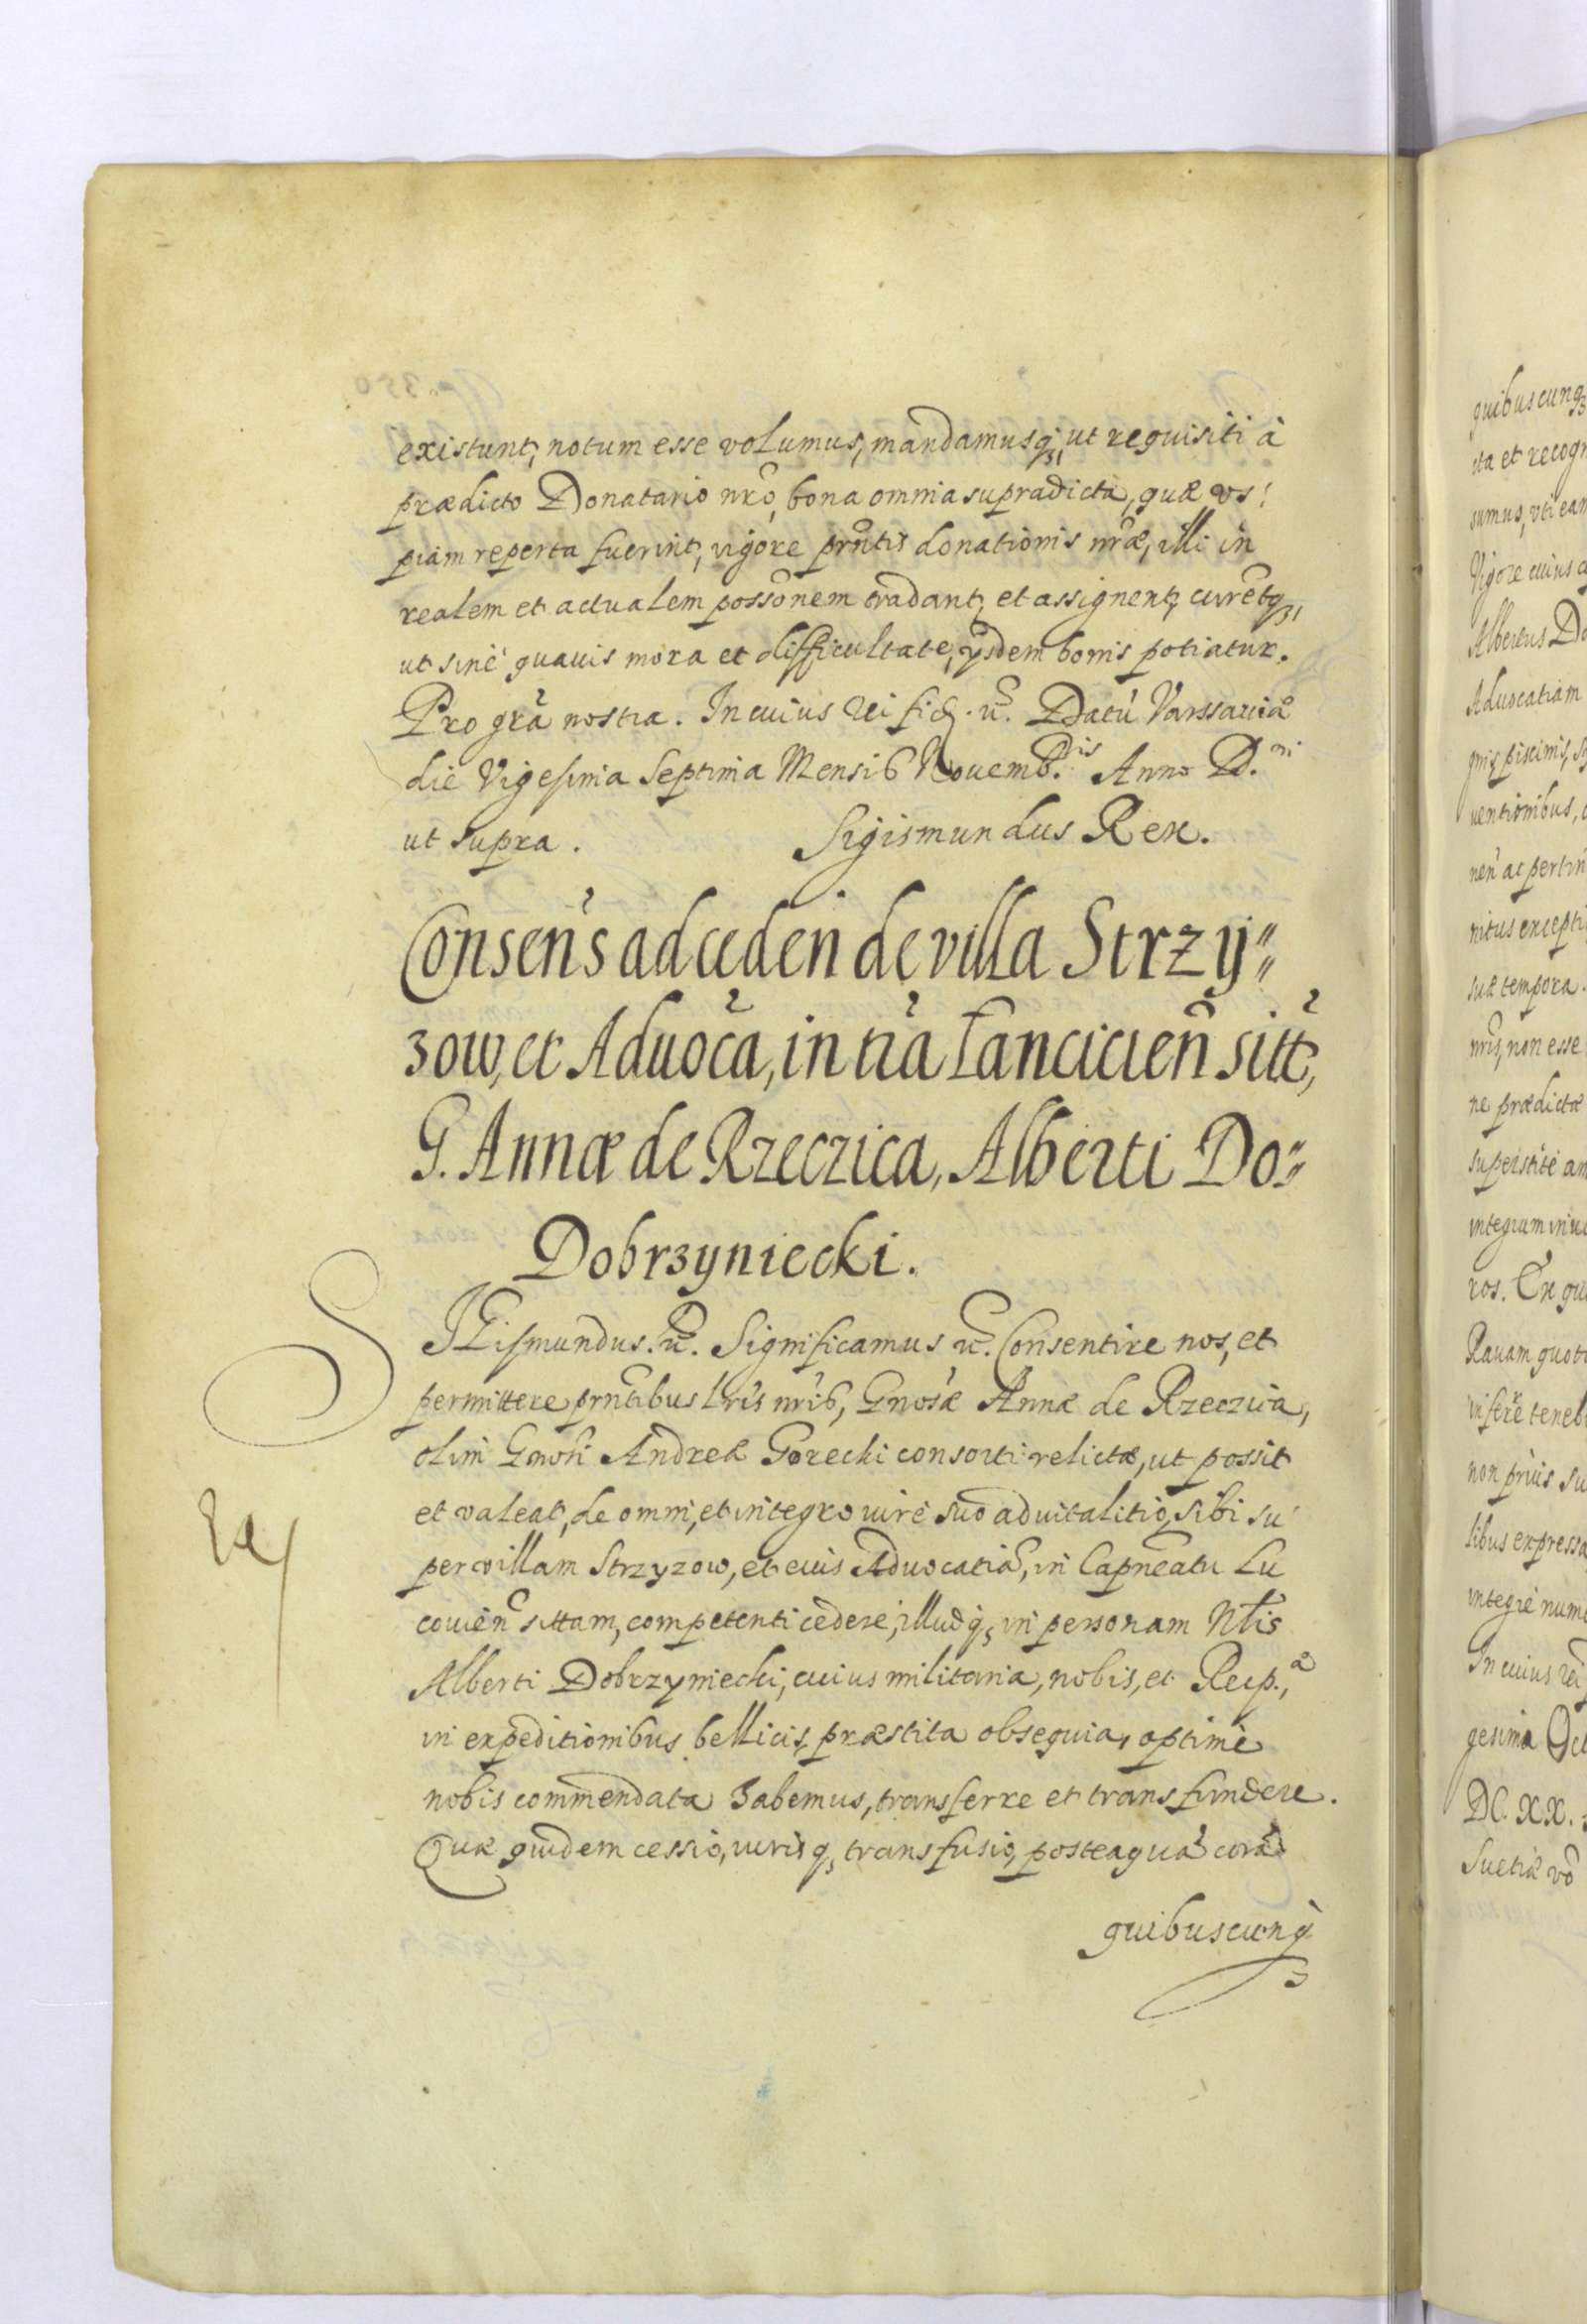 existunt, notum esse volumus, mandamusq3, ut requisiti à
prædicto Donatario nrõ, bona omnia supradicta, quæ us:
piam reperta fuerint, vigore prñtis donationis nr̃æ, illi in
realem et actualem possõnem tradant, et assignent, curẽtq3,
ut sinè quauis mora et difficultate, ysdem bonis potiatur.
Pro gr̃a nostra. In cuius rei fid. &c. Datũ Varssauiæ
die Vigesima Septima Mensis Nouemb.is Anno D.ni
ut supra. Sigismundus Rex.
Consen̉s ad ceden̉ de villa Strzy"
zow, et Aduoc̃a, in tr̃a Lancicien̉ sitt̃,
G. Annæ de Rzeczica, Alberti Do:"
Dobrzyniecki.
SIGismundus. &c. Significamus &c. Consentire nos, et
permittere prñtibus lr̃is nr̃is, Gnosæ Annæ de Rzeczica,
olim Gnosi Andreæ Gorecki consorti relictæ, ut possit
et valeat, de omni, et integro iure suo aduitalitio, sibi su
per villam Strzyzow, et eius Aduocatiã, in Capneatu Lu
couien̉ sittam, competenti cedere, illudq3, in personam Nlis
Alberti Dobrzyniecki, cuius militaria, nobis, et Reip.æ
in expeditionibus bellicis, præstita obsequia, optimè
nobis commendata habemus, transferre et transfundere.
Quæ quidem cessio, iurisq3, transfusio, posteaquã corã
quibuscunq3
quibuscunq3
ita et recogn
sumus, uti eam
Vigore cuius
Albertus Do
Aduocatiam
piscinis,
uentionibus,
nen̉ ac pertin
nitus excepti
suæ tempora.
nr̃is, non esse
ne prædictæ
superstite
integrum
ros. Ex qu
Rauam quot
in fere teneb
non priùs su
libus expressa
integrè num
In cuius rei
gesima Oct
DC. XX.
Suetiæ vo